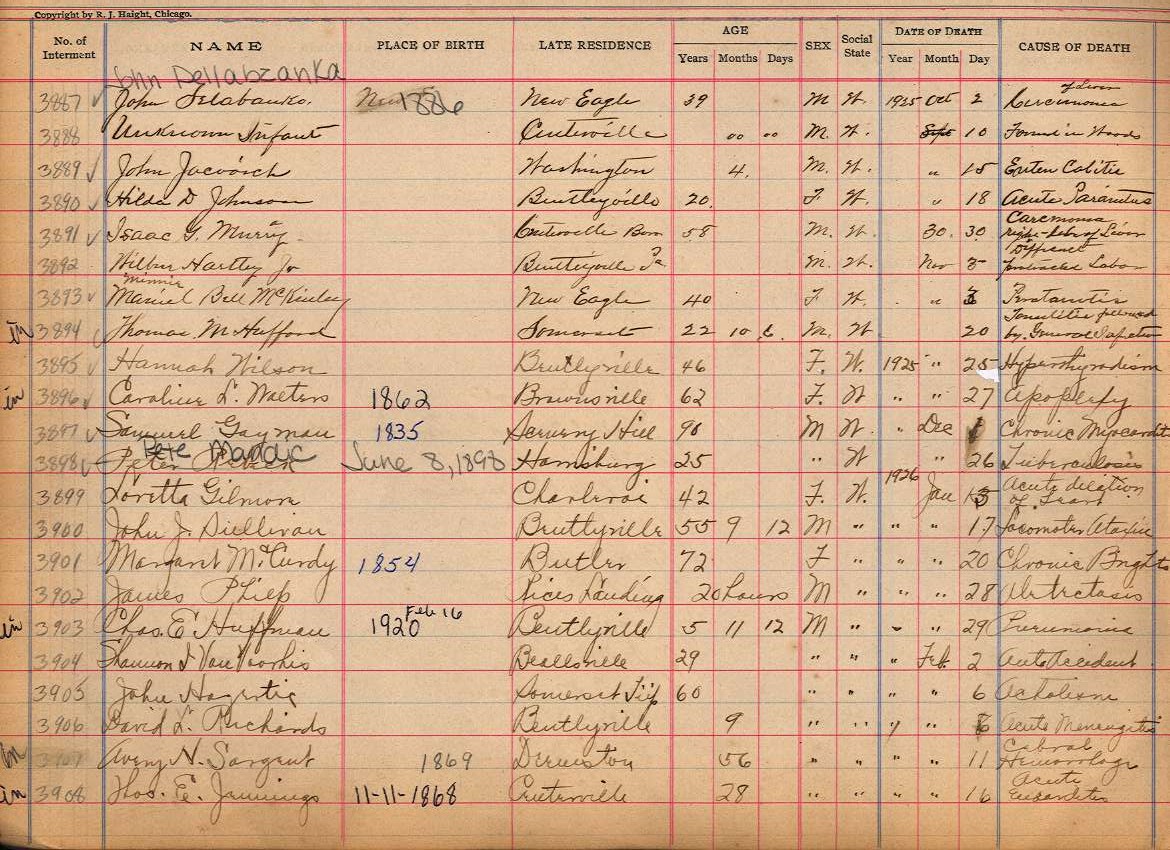 Copyright by R. J. Haight, Chicago.
No. of Interment NAME PLACE OF BIRTH LATE RESIDENCE AGE SEX Social State DATE OF DEATH CAUSE OF DEATH
Years Months Days Year Month Day
John Dellabzanka
3887 John 1886 New Eagle 39 M W. 1925 Oct 2 of Liver
3888 Unknown Infant Centerville " " M. W. Sept 10 Found in Woods
3889 John Washington 4. M. W. " 15
3890 Hilda D Johnson Bentleyville 20. F W. " 18 Acute
3891 Isaac G. Murry Centerville Boro 58 M. W. 30. 30 right lobe of Liver
3892 Wilber Hartley Jr Bentleyville Pa M. W. Nov 5 Labor
Minnie
3893 Bell McKinley New Eagle 40 F W. "
in 3894 Thomas M Hufford Somerset 22 10 6. M. W. 20 Tonsilitis followed by General
3895 Hannah Wilson Bentlyville 46 F. W. 1925 " 25 Hyperthyradism
in 3896 Caroline L. Walters Brownsville 1862 62 F. W. " " 27 Apoplexy
3897 Samuel Gayman 1835 Scenery Hill 90 M W. " Dec 1 Chronic Myocardit
3898 Peter Pete Mandic June 8, 1898 Harrisburg 25 " W 26 Tuberculosis
3899 Loretta Gilmore Charleroi 42 F. W. 1926 Jan 13 Acute dilation of Heart
3900 John J. Sullivan Bentlyville 55 9 12 M " " " 17 Locomotor Ataxia
3901 Margaret McCurdy 1854 Butler 72 F " " " 20 Chronic Brights
3902 James Philp Rices Landing 20 hours M " " " 28
in 3903 Chas. E. Huffman 1920 Feb 16 Bentlyville 5 11 12 M " " 29 Pneumonia
3904 Shannon Van Voorhis Beallsville 29 " " " Feb. 2 Auto Accident
3905 John Somerset Twp 60 " " " " 6 Acholism
3906 David L. Richards Bentlyville 9 " " " " 6 Acute Meningitis
in 3907 Avery N. Sargent 1869 56 " " " " 11 Hemorrhage
in 3908 Thos. E. Jennings 11-11-1868 Centerville 28 " " " " 16 Acute